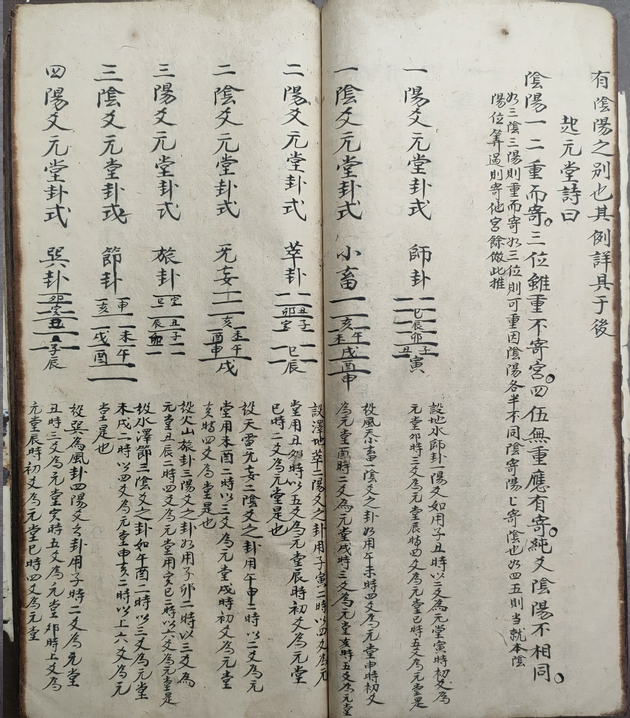 有陰陽之别也其例詳具于後
起元堂詩曰
陰陽一二重而寄三位雖重不寄宮四伍無重應有寄純爻陰陽不相同
如三陰三陽則重而寄如三位則可重因陰陽各半不同陰寄陽七寄陰也如四五則当就本陰
陽位筭過則寄他宮餘倣此推
一陽爻元堂卦式 師卦
巳辰卯子
丑寅
設地水師卦一陽爻如用子丑時以二爻為元堂寅時初爻為
元堂卯時三爻為元堂辰時四爻為元堂巳時五爻為元堂是
一陰爻元堂卦式 小畜
亥午
未戌酉申
設風天小畜一陰爻之卦如用午未時四爻為元堂申時初爻
為元堂酉時二爻為元堂戌時三爻為元堂亥時五爻為元堂
二陽爻元堂卦式 萃卦
丑子
卯寅
巳辰
設澤地萃二陽爻之卦用子寅二時以四爻為元
堂用丑卯時以五爻為元堂辰時初爻為元堂
巳時二爻為元堂是也
二陰爻元堂卦式 无妄
亥未午
酉申戌
設天雷无妄二陰爻之卦用午申二時以二爻為元
堂用未酉二時以三爻為元堂戌時初爻為元堂
亥時四爻為元堂是也
三陽爻元堂卦式 旅卦
丑子
辰卯
設火山旅卦三陽爻之卦如用子卯二時以三爻為
元堂丑辰二時四爻為元堂用寅巳二時以六爻為元堂是
三陰爻元堂卦式 節卦
申
亥未午
戌酉
設水澤節三陰爻之卦如午酉二時以三爻為元堂
未戌二時以四爻為元堂申亥二時以上六爻為元
堂是也
四陽爻元堂卦式 巽卦
卯
寅
丑
子辰
設巽為風卦四陽爻之卦用子時二爻為元堂
丑時三爻為元堂寅時五爻為元堂卯時上爻為
元堂辰時初爻為元堂巳時四爻為元堂